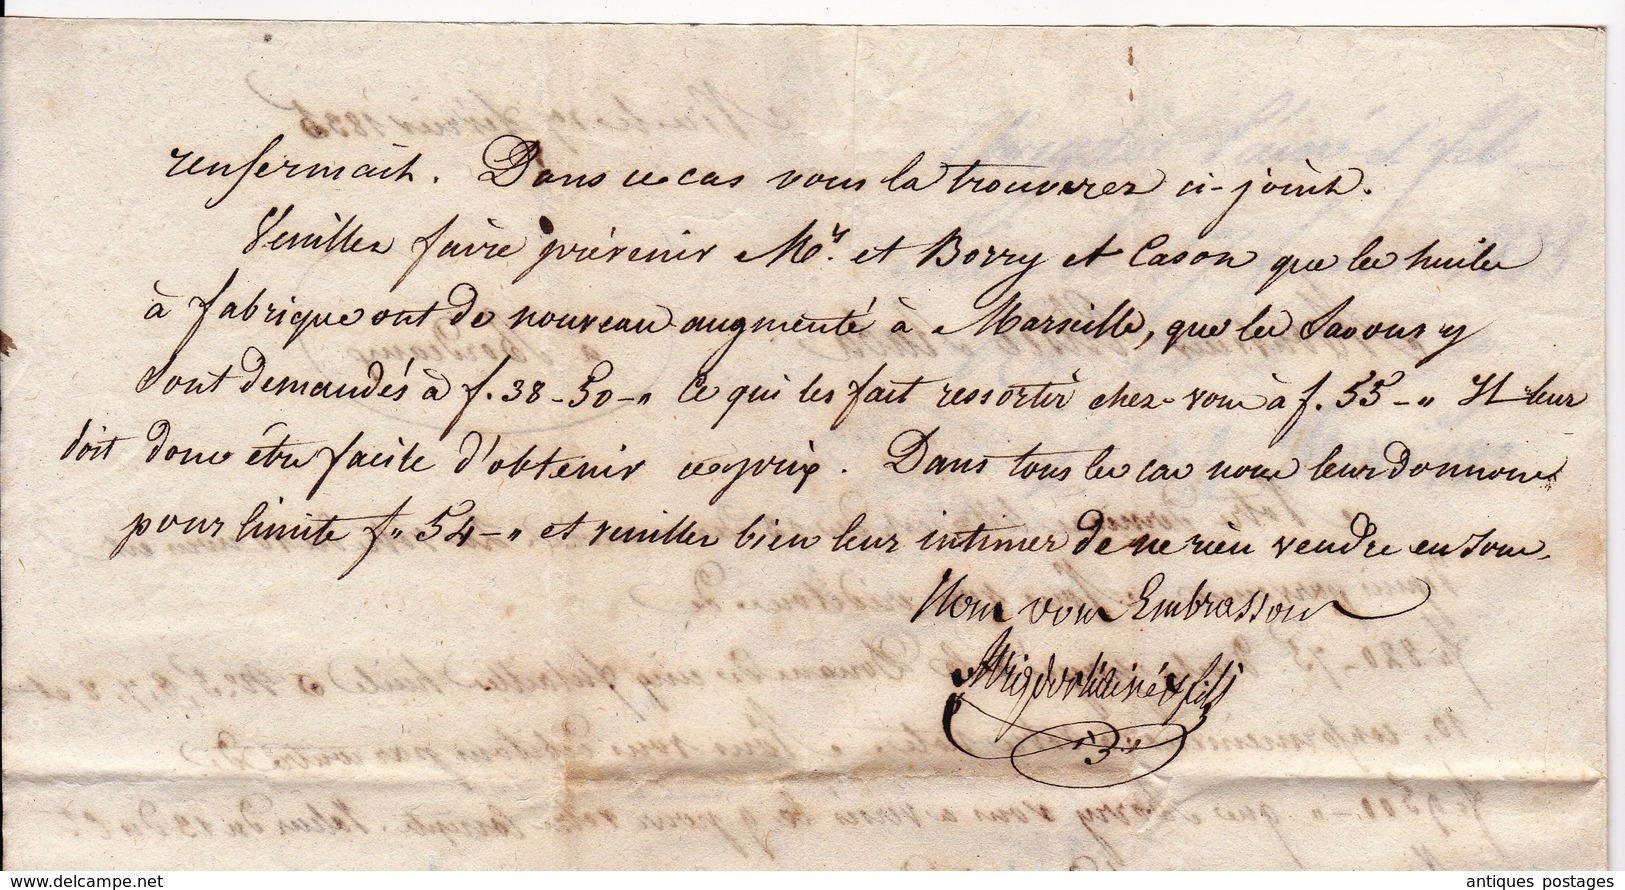 renfermait. Dans ce cas vous la trouverez ci-joint.
Veuillez faire prévenir Mrs. et Borry et Cason que les huiles
à fabrique ont de nouveau augmenté à Marseille, que les Savons y
sont demandés à f. 38-50-" Ce qui les fait ressortir chez vous à f. 55-" Il leur
doit donc être facile d'obtenir ce prix. Dans tous les cas nous leur donnons
pour limite f" 54-" et veuillez bien leur intimer de ne rien vendre en sous.
Nous vous Embrassons
ainé & fils
delcampe.net
antiques postages